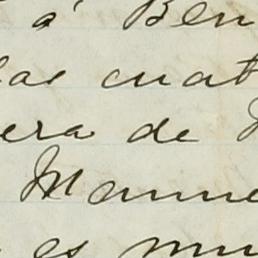 á Ben
las cuat
era de
Manue
es mu